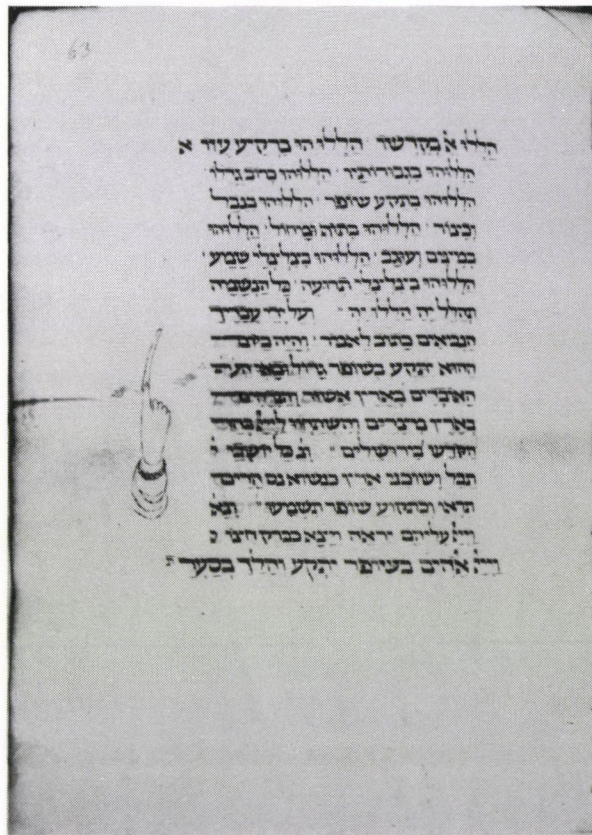 63
הללו אל בקדשו הללוהו ברקיע עוזו א
הללוהו בגבורותיו הללוהו כרוב גדלו
הללוהו בתקע שופר הללוהו בנבל
וכנור הללוהו בתוף ומחול הללוהו
במינים ועוגב הללוהו בצלצלי שמע
הללוהו בצלצלי תרועה כל הנשמה
תהלל יה הללו יה ועל ידי עבדיך
הנביאים כתוב לאמר והיה ביום
ההוא יתקע בשופר גדול ובאו
האובדים בארץ אשור והנדחים
בארץ מצרים והשתחוו
הקדש בירושלים וג כל יושבי
תבל ושוכני ארץ כנשוא נס הרים
תראו וכתקוע שופר תשמעו ונא
ויי עליהם יראה ויצא כברק חיצו
ויי אלהים בשופר יתקע והלך בסערו